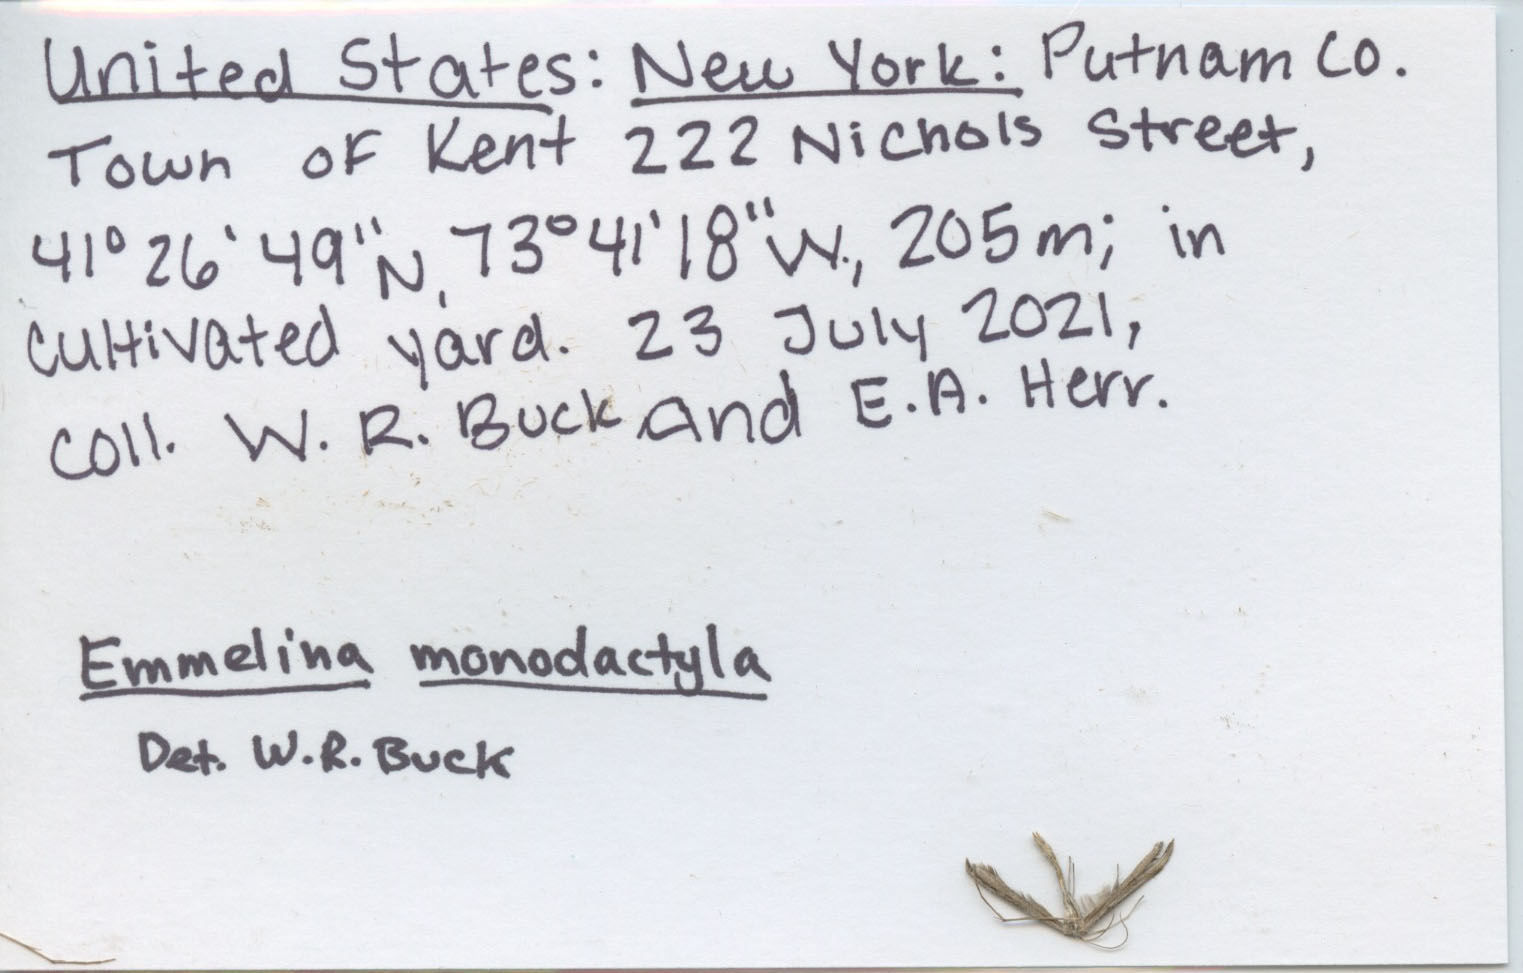 United States: New York: Putnam Co.
Town of Kent 222 Nichols Street,
41° 26' 49"N, 73°41'18"W., 205m; in
cultivated yard. 23 July 2021,
coll. W. R. Buck and E.A. Herr.
Emmelina monodactyla
Det. W.R. Buck